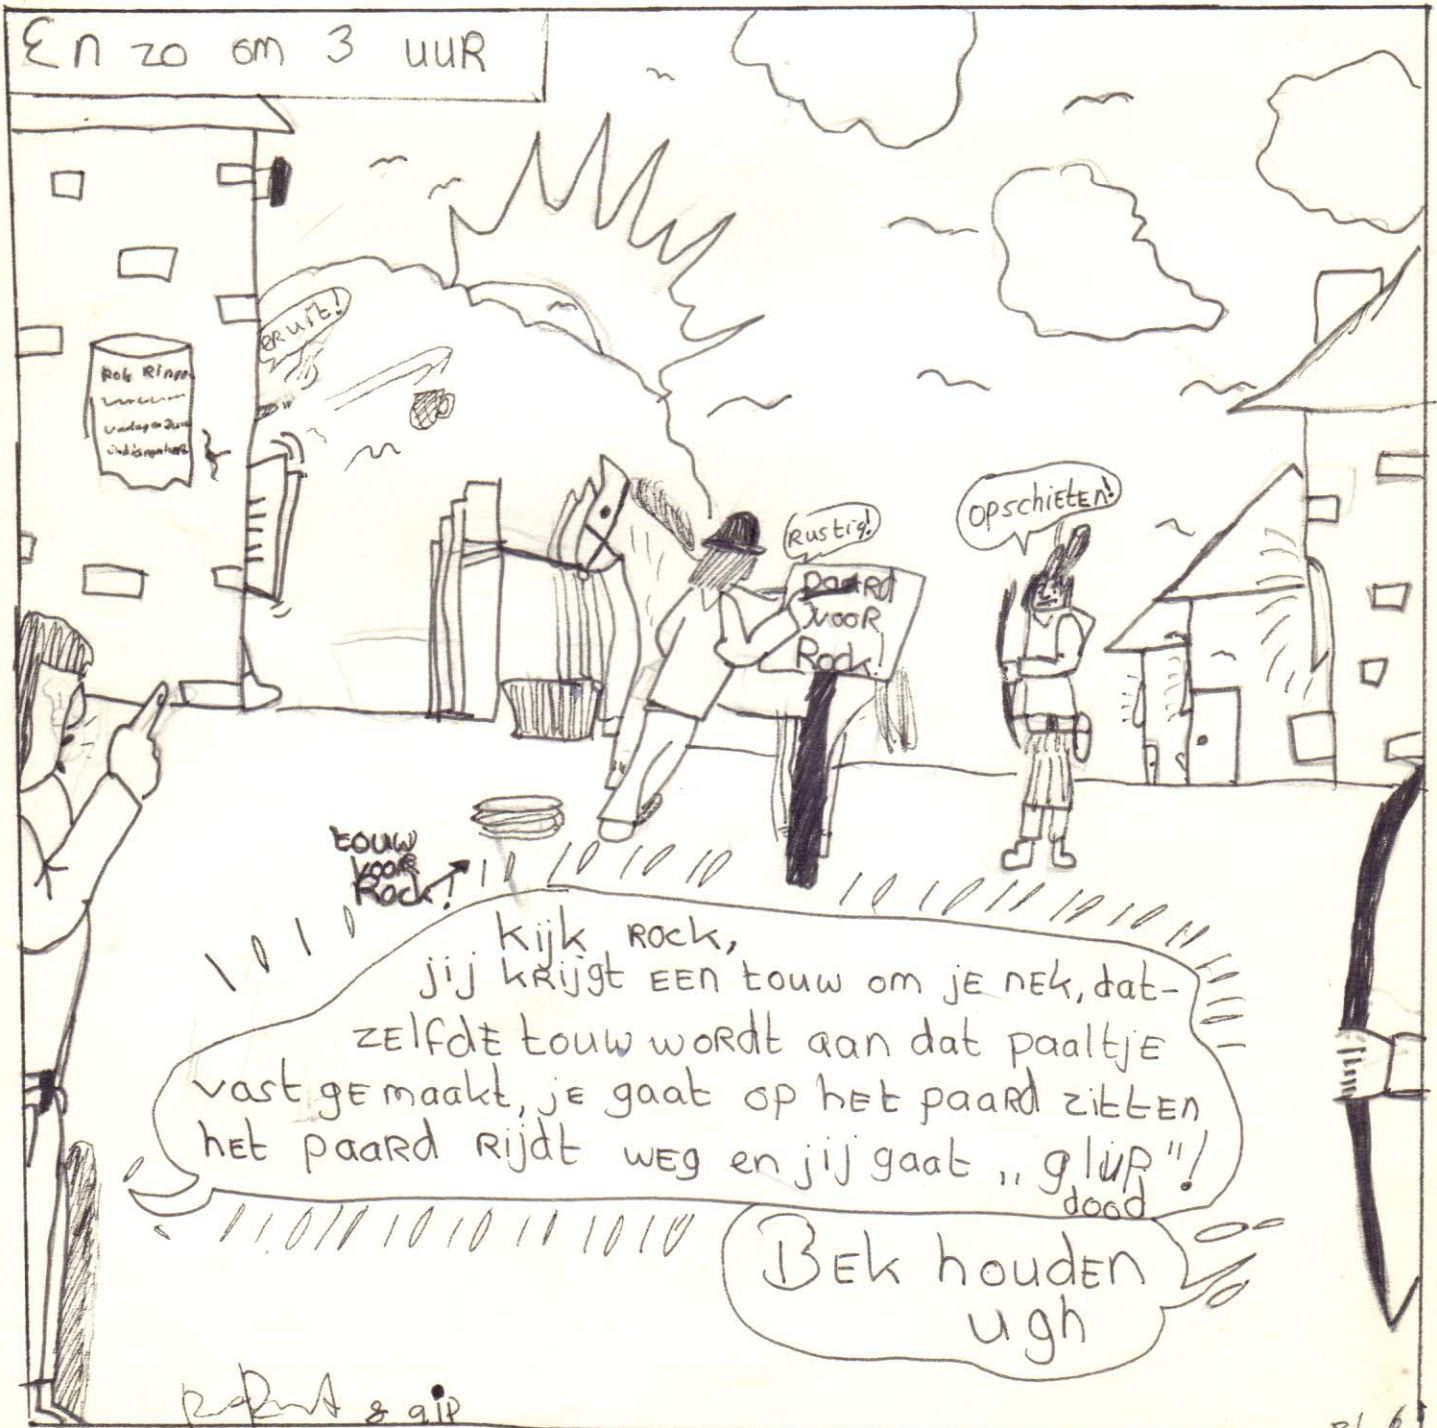 En zo om 3 uur
er uit!
Rob
Rustig!
opschieten!
paard
voor
Rock!
touw
voor
Rock!
kijk Rock,
jij krijgt een touw om je nek, dat-
zelfde touw wordt aan dat paaltje
vast gemaakt, je gaat op het paard zitten
het paard rijdt weg en jij gaat „glup"!
dood
Bek houden
ugh